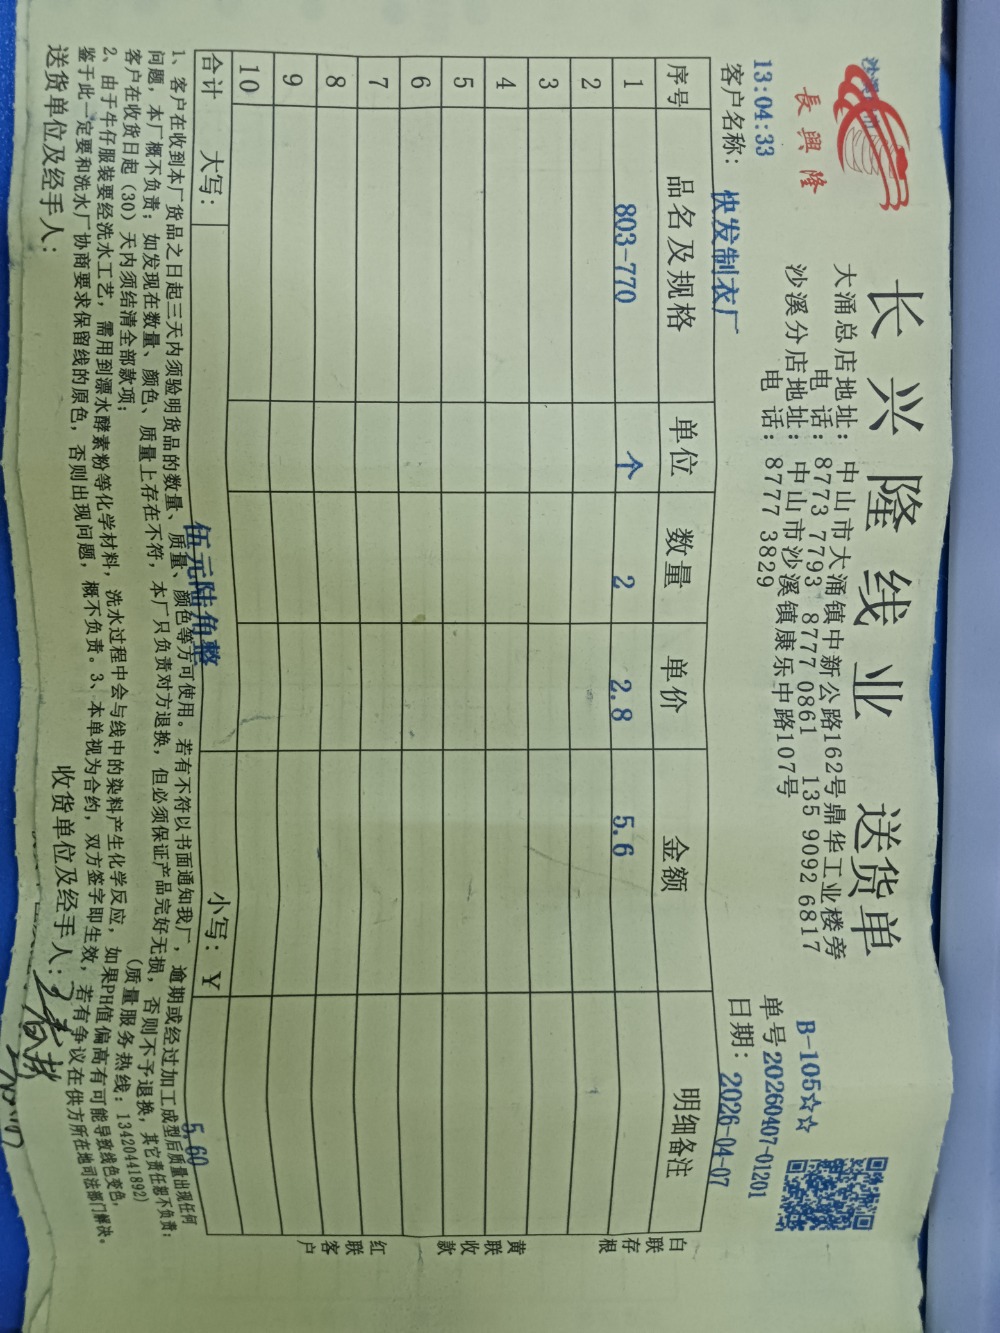 長興隆
长兴隆线业 送货单
大涌总店地址：中山市大涌镇中新公路162号鼎华工业楼旁
电 话：8773 7793 8777 0861 135 9092 6817
沙溪分店地址：中山市沙溪镇康乐中路107号
电 话：8777 3829
B-105☆☆
单号20260407-01201
13:04:33
客户名称：快发制衣厂
日期：2026-04-07
序号 品名及规格 单位 数量 单价 金额 明细备注
1 803-770 个 2 2.8 5.6
2
3
4
5
6
7
8
9
10
合计 大写：伍元陆角整 小写：￥ 5.60
白联存根
黄联收款
红联客户
1、客户在收到本厂货品之日起三天内须验明货品的数量、质量、颜色等方可使用。若有不符以书面通知我厂，逾期或经过加工成型后质量出现任何
问题，本厂概不负责；如发现在数量、颜色、质量上存在不符，本厂只负责对方退换，但必须保证产品完好无损，否则不予退换，其它责任恕不负责；
客户在收货日起（30）天内须结清全部款项； （质量服务热线：13420441892）
2、由于牛仔服装要经洗水工艺，需用到漂水酵素粉等化学材料，洗水过程中会与线中的染料产生化学反应，如果PH值偏高有可能导致线色变色，
鉴于此一定要和洗水厂协商要求保留线的原色，否则出现问题，概不负责。3、本单视为合约，双方签字即生效，若有争议在供方所在地司法部门解决。
送货单位及经手人： 收货单位及经手人：